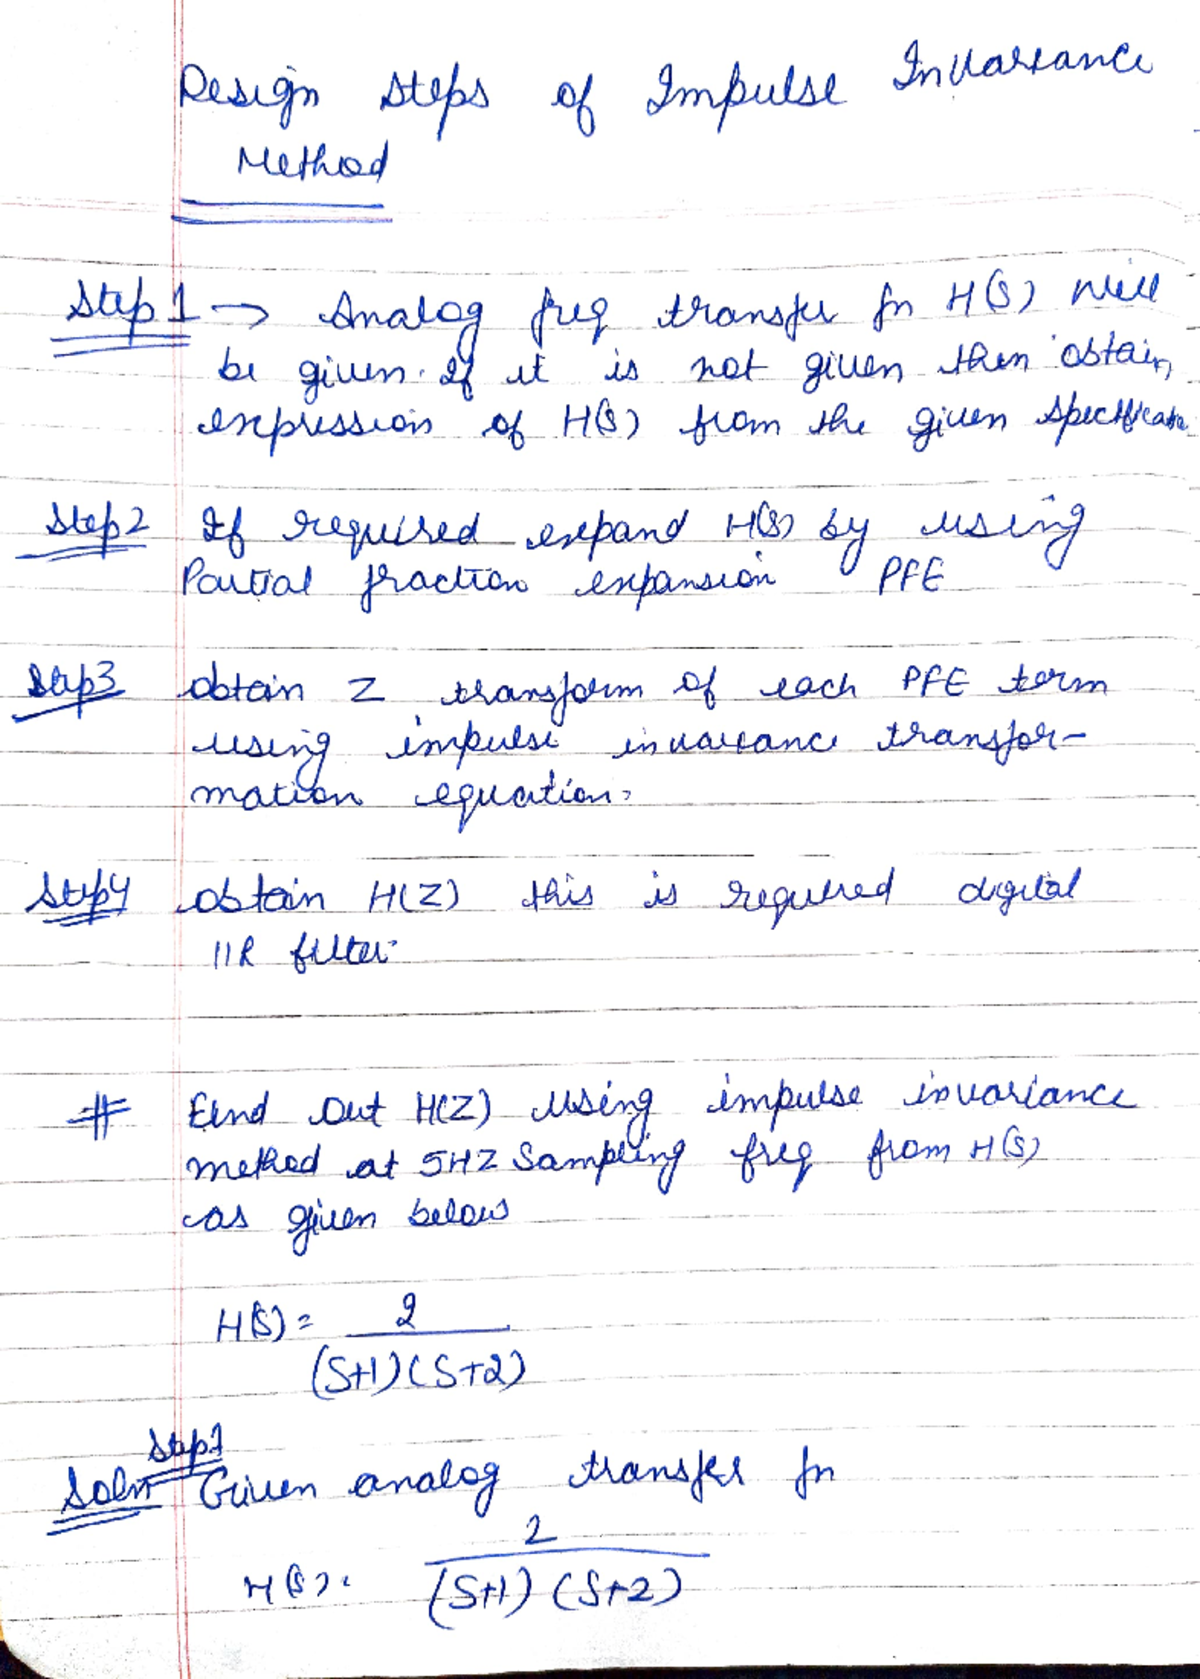 Design steps of Impulse Invariance
Method
Step 1 → Analog freq transfer fn H(S) will
be given. If it is not given then obtain,
expression of H(S) from the given specificatn
Step2 If required expand H(S) by using
Partial fraction expansion PFE
Step3 obtain Z transform of each PFE term
using impulse invariance transfor-
mation equation.
Step4 obtain H(Z) this is required digital
IIR filter.
# Find out H(Z) using impulse invariance
method at 5HZ Sampling freq from H(S)
as given below
H(S) = 2
(S+1)(S+2)
Step1
Soln Given analog transfer fn
2
H(S) =
(S+1) (S+2)